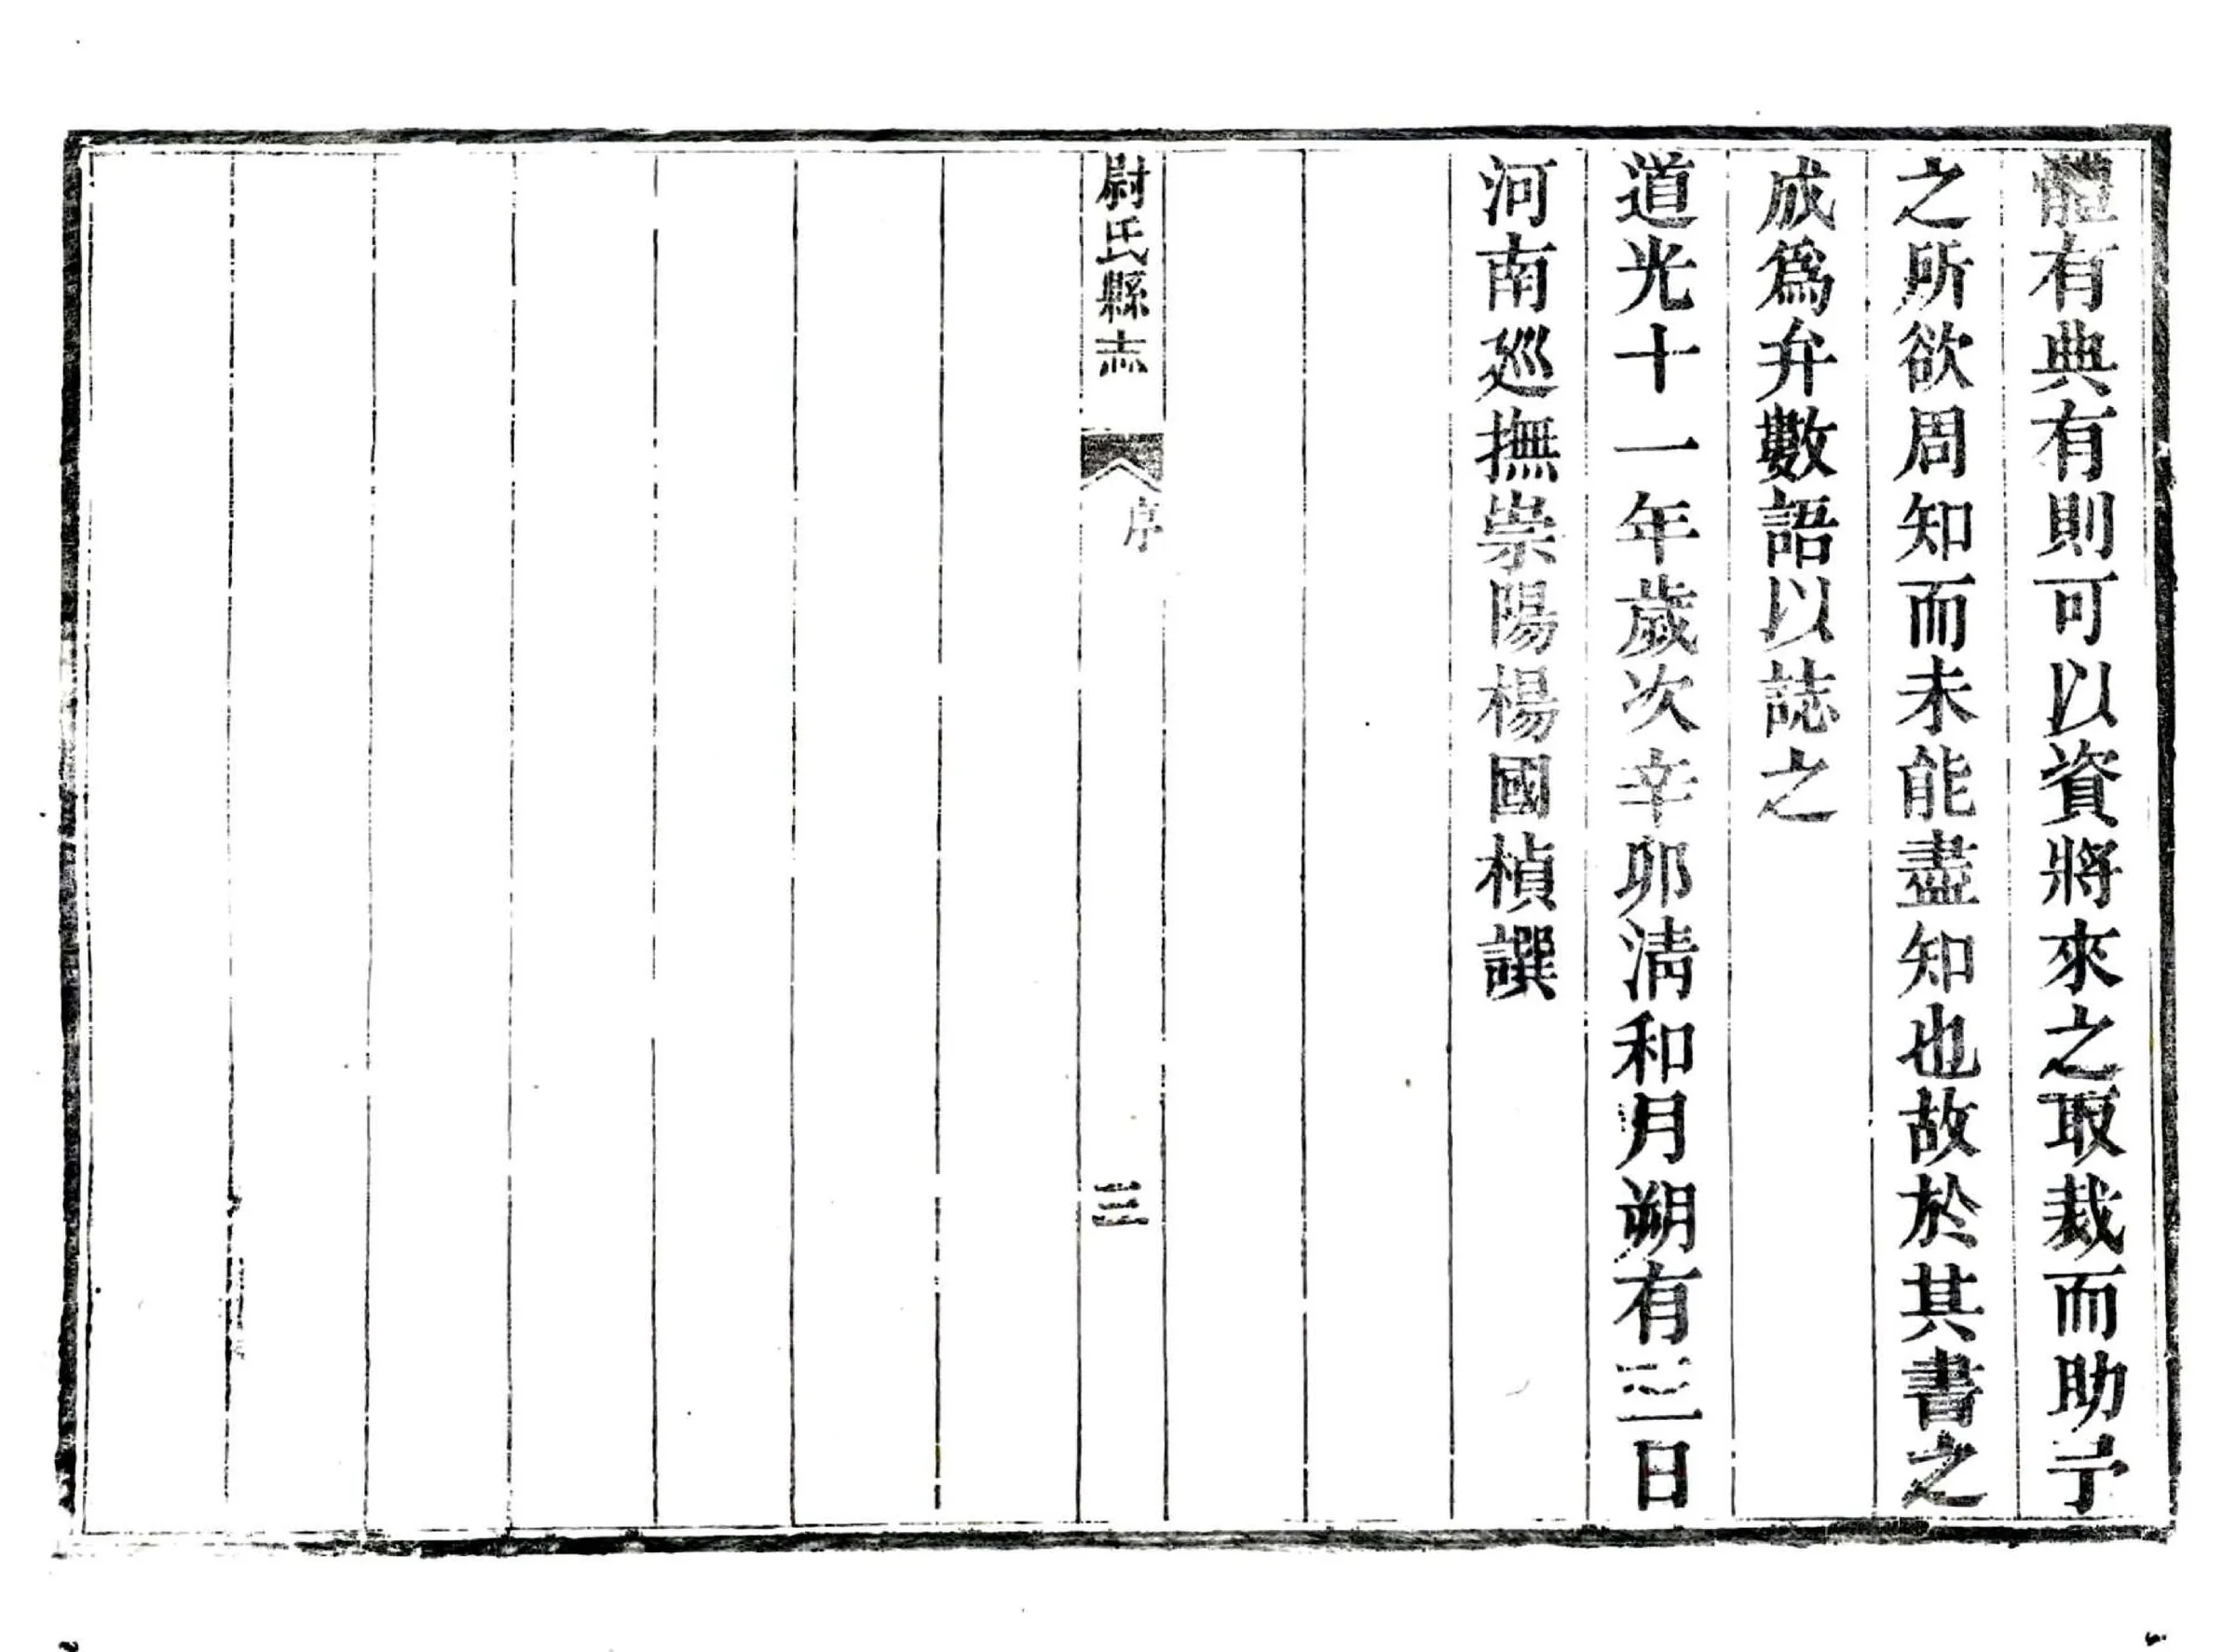 體有典有則可以資將來之取裁而助予
之所欲周知而未能盡知也故於其書之
成爲弁數語以誌之
道光十一年歲次辛卯清和月朔有三日
河南巡撫崇陽楊國楨譔
尉氏縣志
序
三